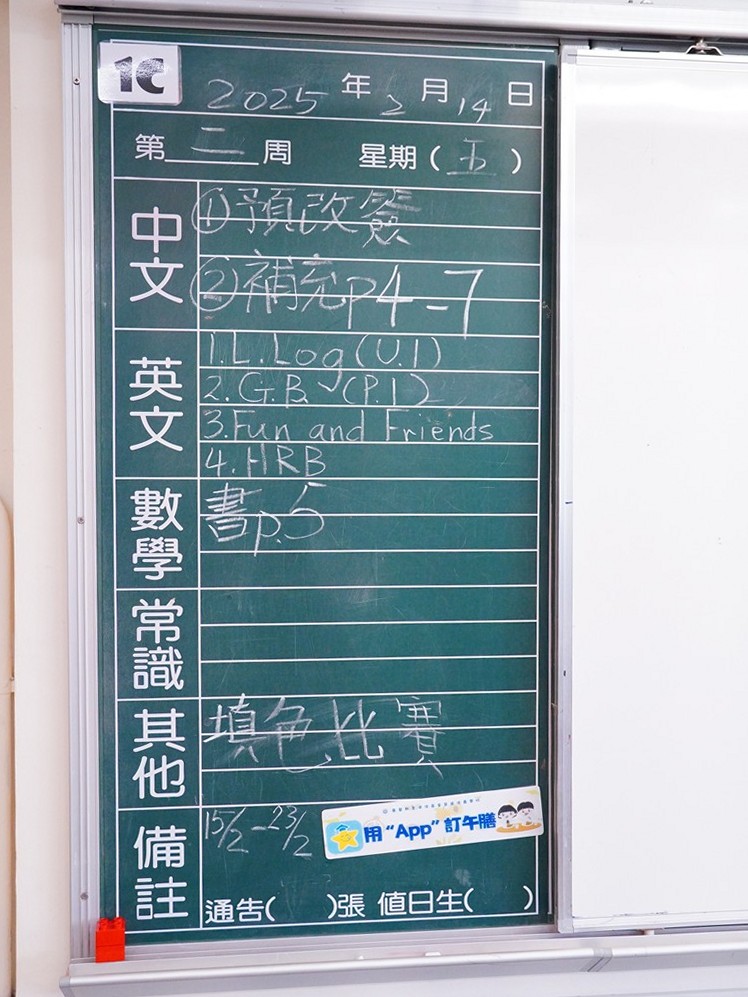 1C
2025 年 2 月 14 日
第 二 周 星期 ( 五 )
中文
①預改簽
②補充p4-7
英文
1.L.Log(U.1)
2.G.B (P.1)
3.Fun and Friends
4.HRB
數學
書p.5
常識
其他
填色比賽
備註
15/2-23/2
用“App”訂午膳
通告( )張 值日生( )